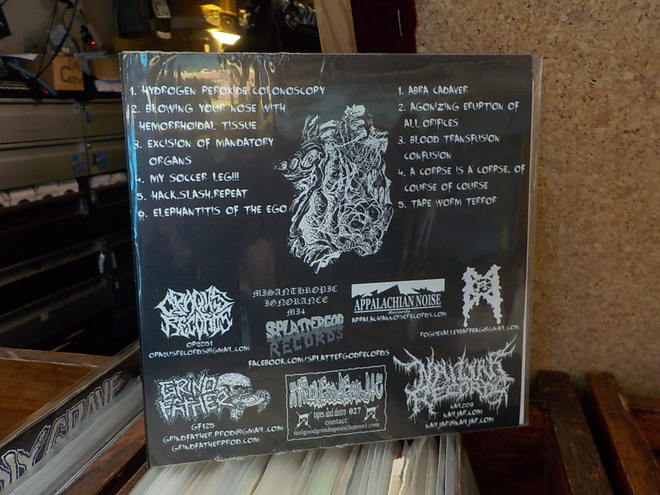 1. HYDROGEN PEROXIDE COLONOSCOPY
2. BLOWING YOUR NOSE WITH
HEMORRHOIDAL TISSUE
3. EXCISION OF MANDATORY
ORGANS
4. MY SOCCER LEG!!!
5. HACK.SLASH.REPEAT
6. ELEPHANTITIS OF THE EGO
1. ABRA CADAVER
2. AGONIZING ERUPTION OF
ALL ORIFICES
3. BLOOD TRANSFUSION
CONFUSION
4. A CORPSE IS A CORPSE, OF
COURSE OF COURSE
5. TAPE WORM TERROR
OPAQUS
RECORDS
OP2051
OPAQUSRECORDS@GMAIL.COM
MISANTHROPIC
IGNORANCE
MI4
SPLATTERGOD
RECORDS
FACEBOOK.COM/SPLATTERGODRECORDS
APPALACHIAN NOISE
Records
APPALACHIANNOISERECORDS.COM
ROGUEVALLEYBARFBAG@GMAIL.COM
GRIND
FATHER
GF125
GRINDFATHER.PROD@GMAIL.COM
GRINDFATHERPROD.COM
tapes and distro 027
contact:
feelgoodgrindtapes@hotmail.com
NAILJAR.COM
NAILJAR@NAILJAR.COM
GRAVE